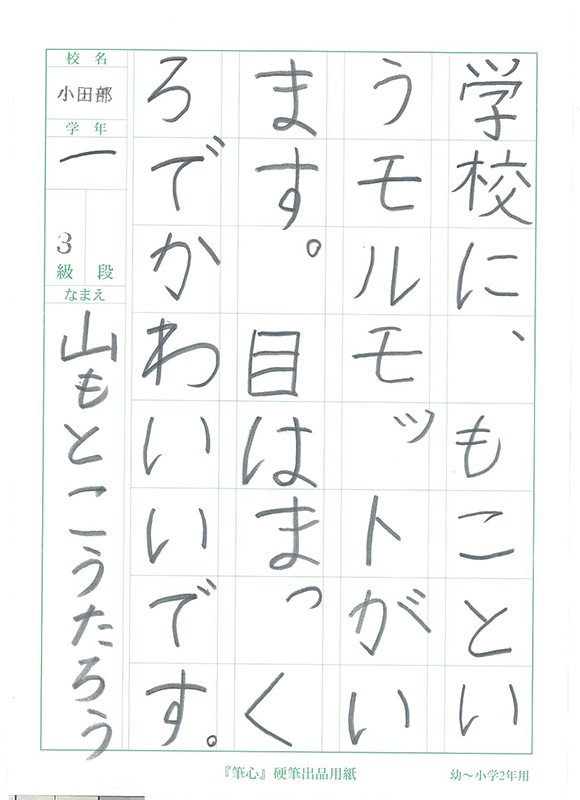 学校に、もこてい
うモルモットがい
ます。目はまっく
ろでかわいいです。
校名
小田部
学年
一
3
級 段
なまえ
山もとこうたろう
『筆心』硬筆出品用紙
幼〜小学2年用